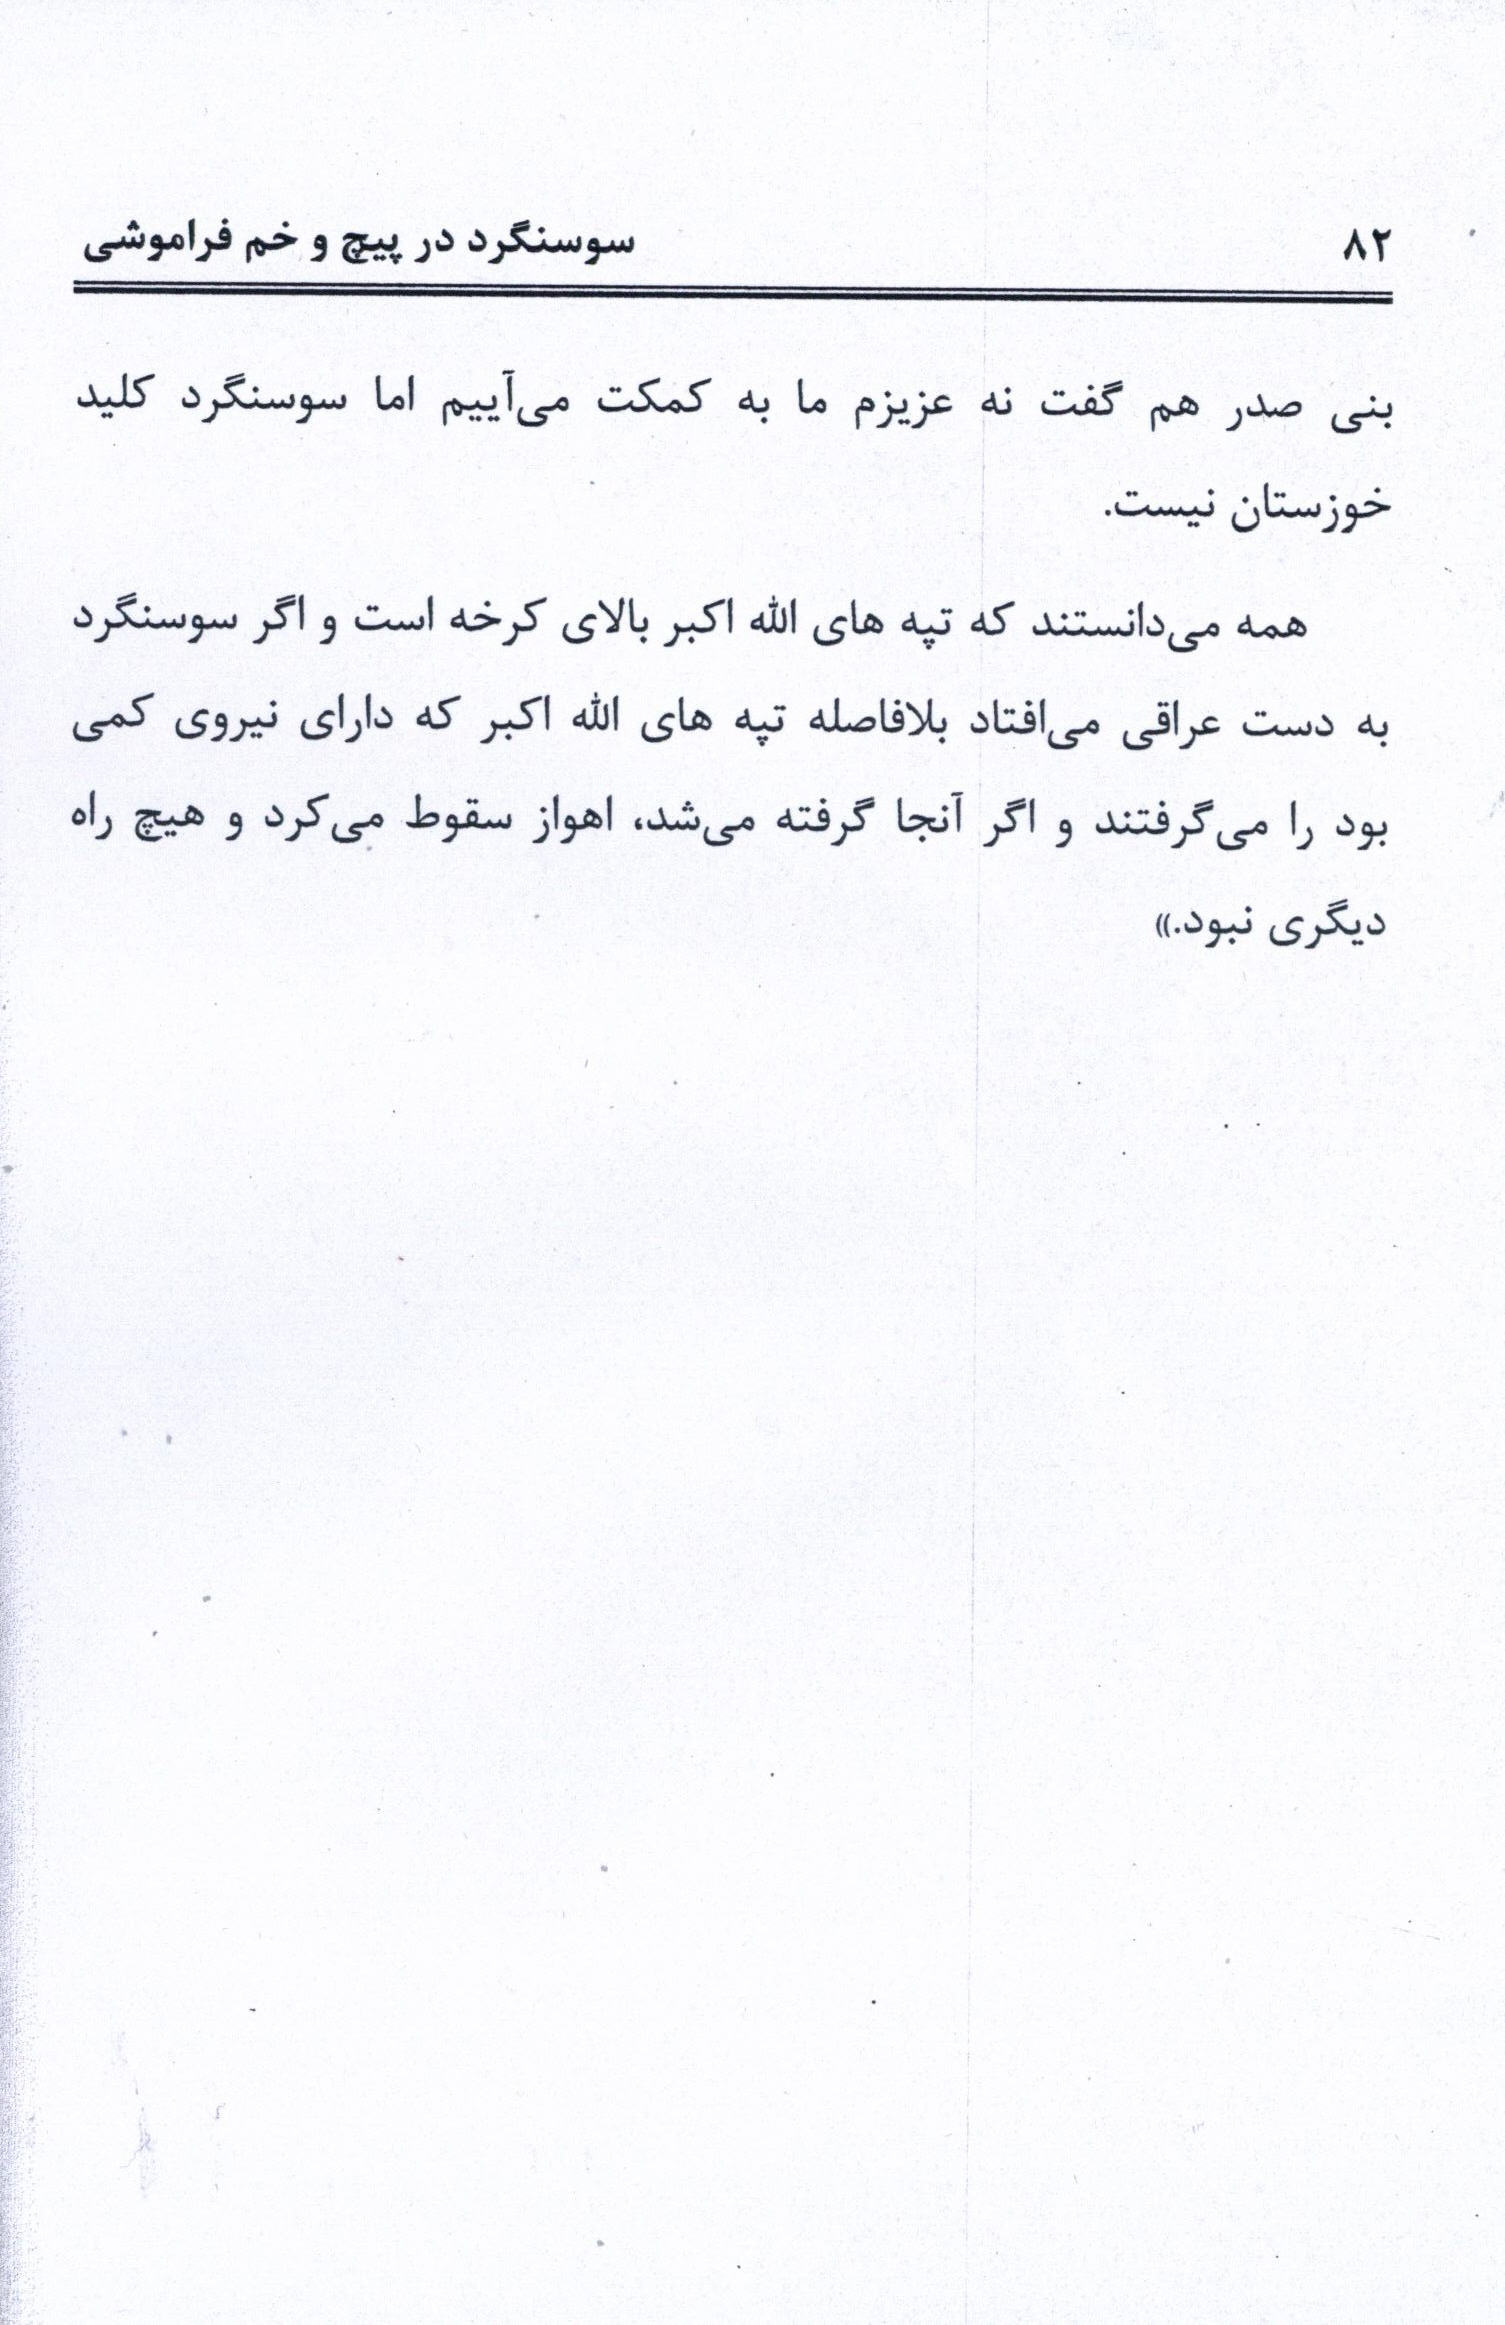 ۸۲ سوسنگرد در پیچ و خم فراموشی
بنی صدر هم گفت نه عزیزم ما به کمکت می‌آییم اما سوسنگرد کلید
خوزستان نیست.
همه می‌دانستند که تپه های الله اکبر بالای کرخه است و اگر سوسنگرد
به دست عراقی می‌افتاد بلافاصله تپه های الله اکبر که دارای نیروی کمی
بود را می‌گرفتند و اگر آنجا گرفته می‌شد، اهواز سقوط می‌کرد و هیچ راه
دیگری نبود.»